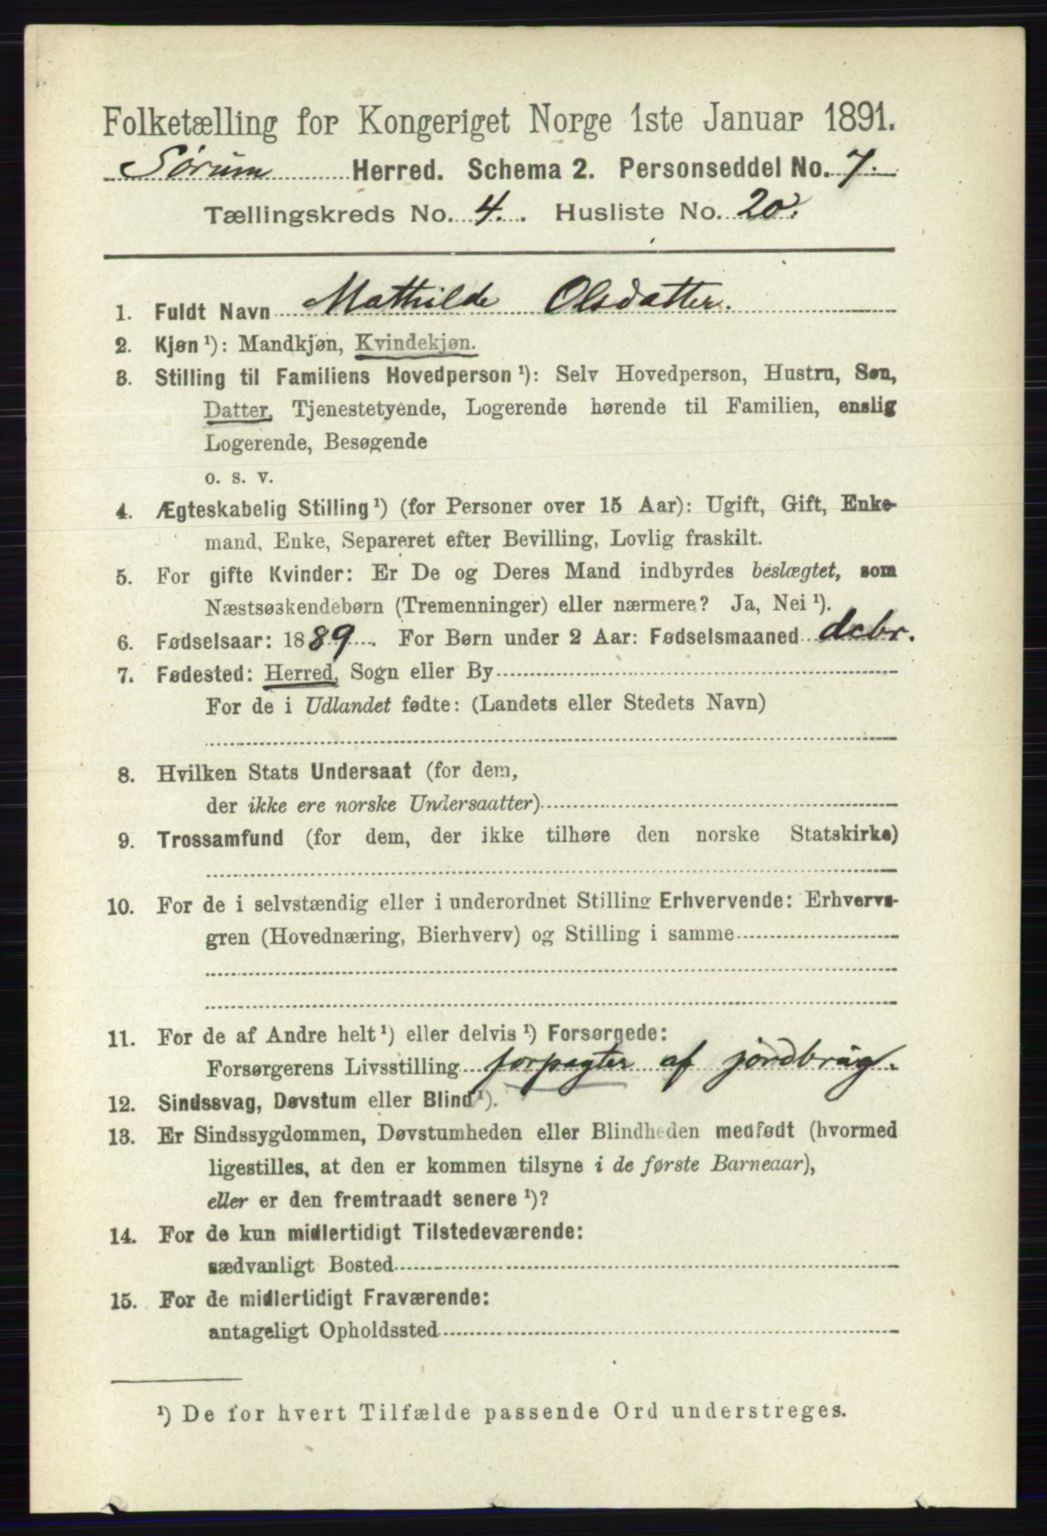 Folketælling for Kongeriget Norge 1ste Januar 1891.
Sørum Herred. Schema 2. Personseddel No. 7.
Tællingskreds No. 4. Husliste No. 20.
1. Fuldt Navn Mathilde Olsdatter.
2. Kjøn ¹): Mandkjøn, Kvindekjøn.
3. Stilling til Familiens Hovedperson ¹): Selv Hovedperson, Hustru, Søn,
Datter, Tjenestetyende, Logerende hørende til Familien, enslig
Logerende, Besøgende
o. s. v.
4. Ægteskabelig Stilling ¹) (for Personer over 15 Aar): Ugift, Gift, Enke-
mand, Enke, Separeret efter Bevilling, Lovlig fraskilt.
5. For gifte Kvinder: Er De og Deres Mand indbyrdes beslægtet, som
Næstsøskendebørn (Tremenninger) eller nærmere? Ja, Nei ¹).
6. Fødselsaar: 1889. For Børn under 2 Aar: Fødselsmaaned debr.
7. Fødested: Herred, Sogn eller By
For de i Udlandet fødte: (Landets eller Stedets Navn)
8. Hvilken Stats Undersaat (for dem,
der ikke ere norske Undersaatter)
9. Trossamfund (for dem, der ikke tilhøre den norske Statskirke)
10. For de i selvstændig eller i underordnet Stilling Erhvervende: Erhvervs-
gren (Hovednæring, Bierhverv) og Stilling i samme
11. For de af Andre helt ¹) eller delvis ¹) Forsørgede:
Forsørgerens Livsstilling forpagter af jordbrug.
12. Sindssvag, Døvstum eller Blind ¹).
13. Er Sindssygdommen, Døvstumheden eller Blindheden medfødt (hvormed
ligestilles, at den er kommen tilsyne i de første Barneaar),
eller er den fremtraadt senere ¹)?
14. For de kun midlertidigt Tilstedeværende:
sædvanligt Bosted
15. For de midlertidigt Fraværende:
antageligt Opholdssted
¹) De for hvert Tilfælde passende Ord understreges.